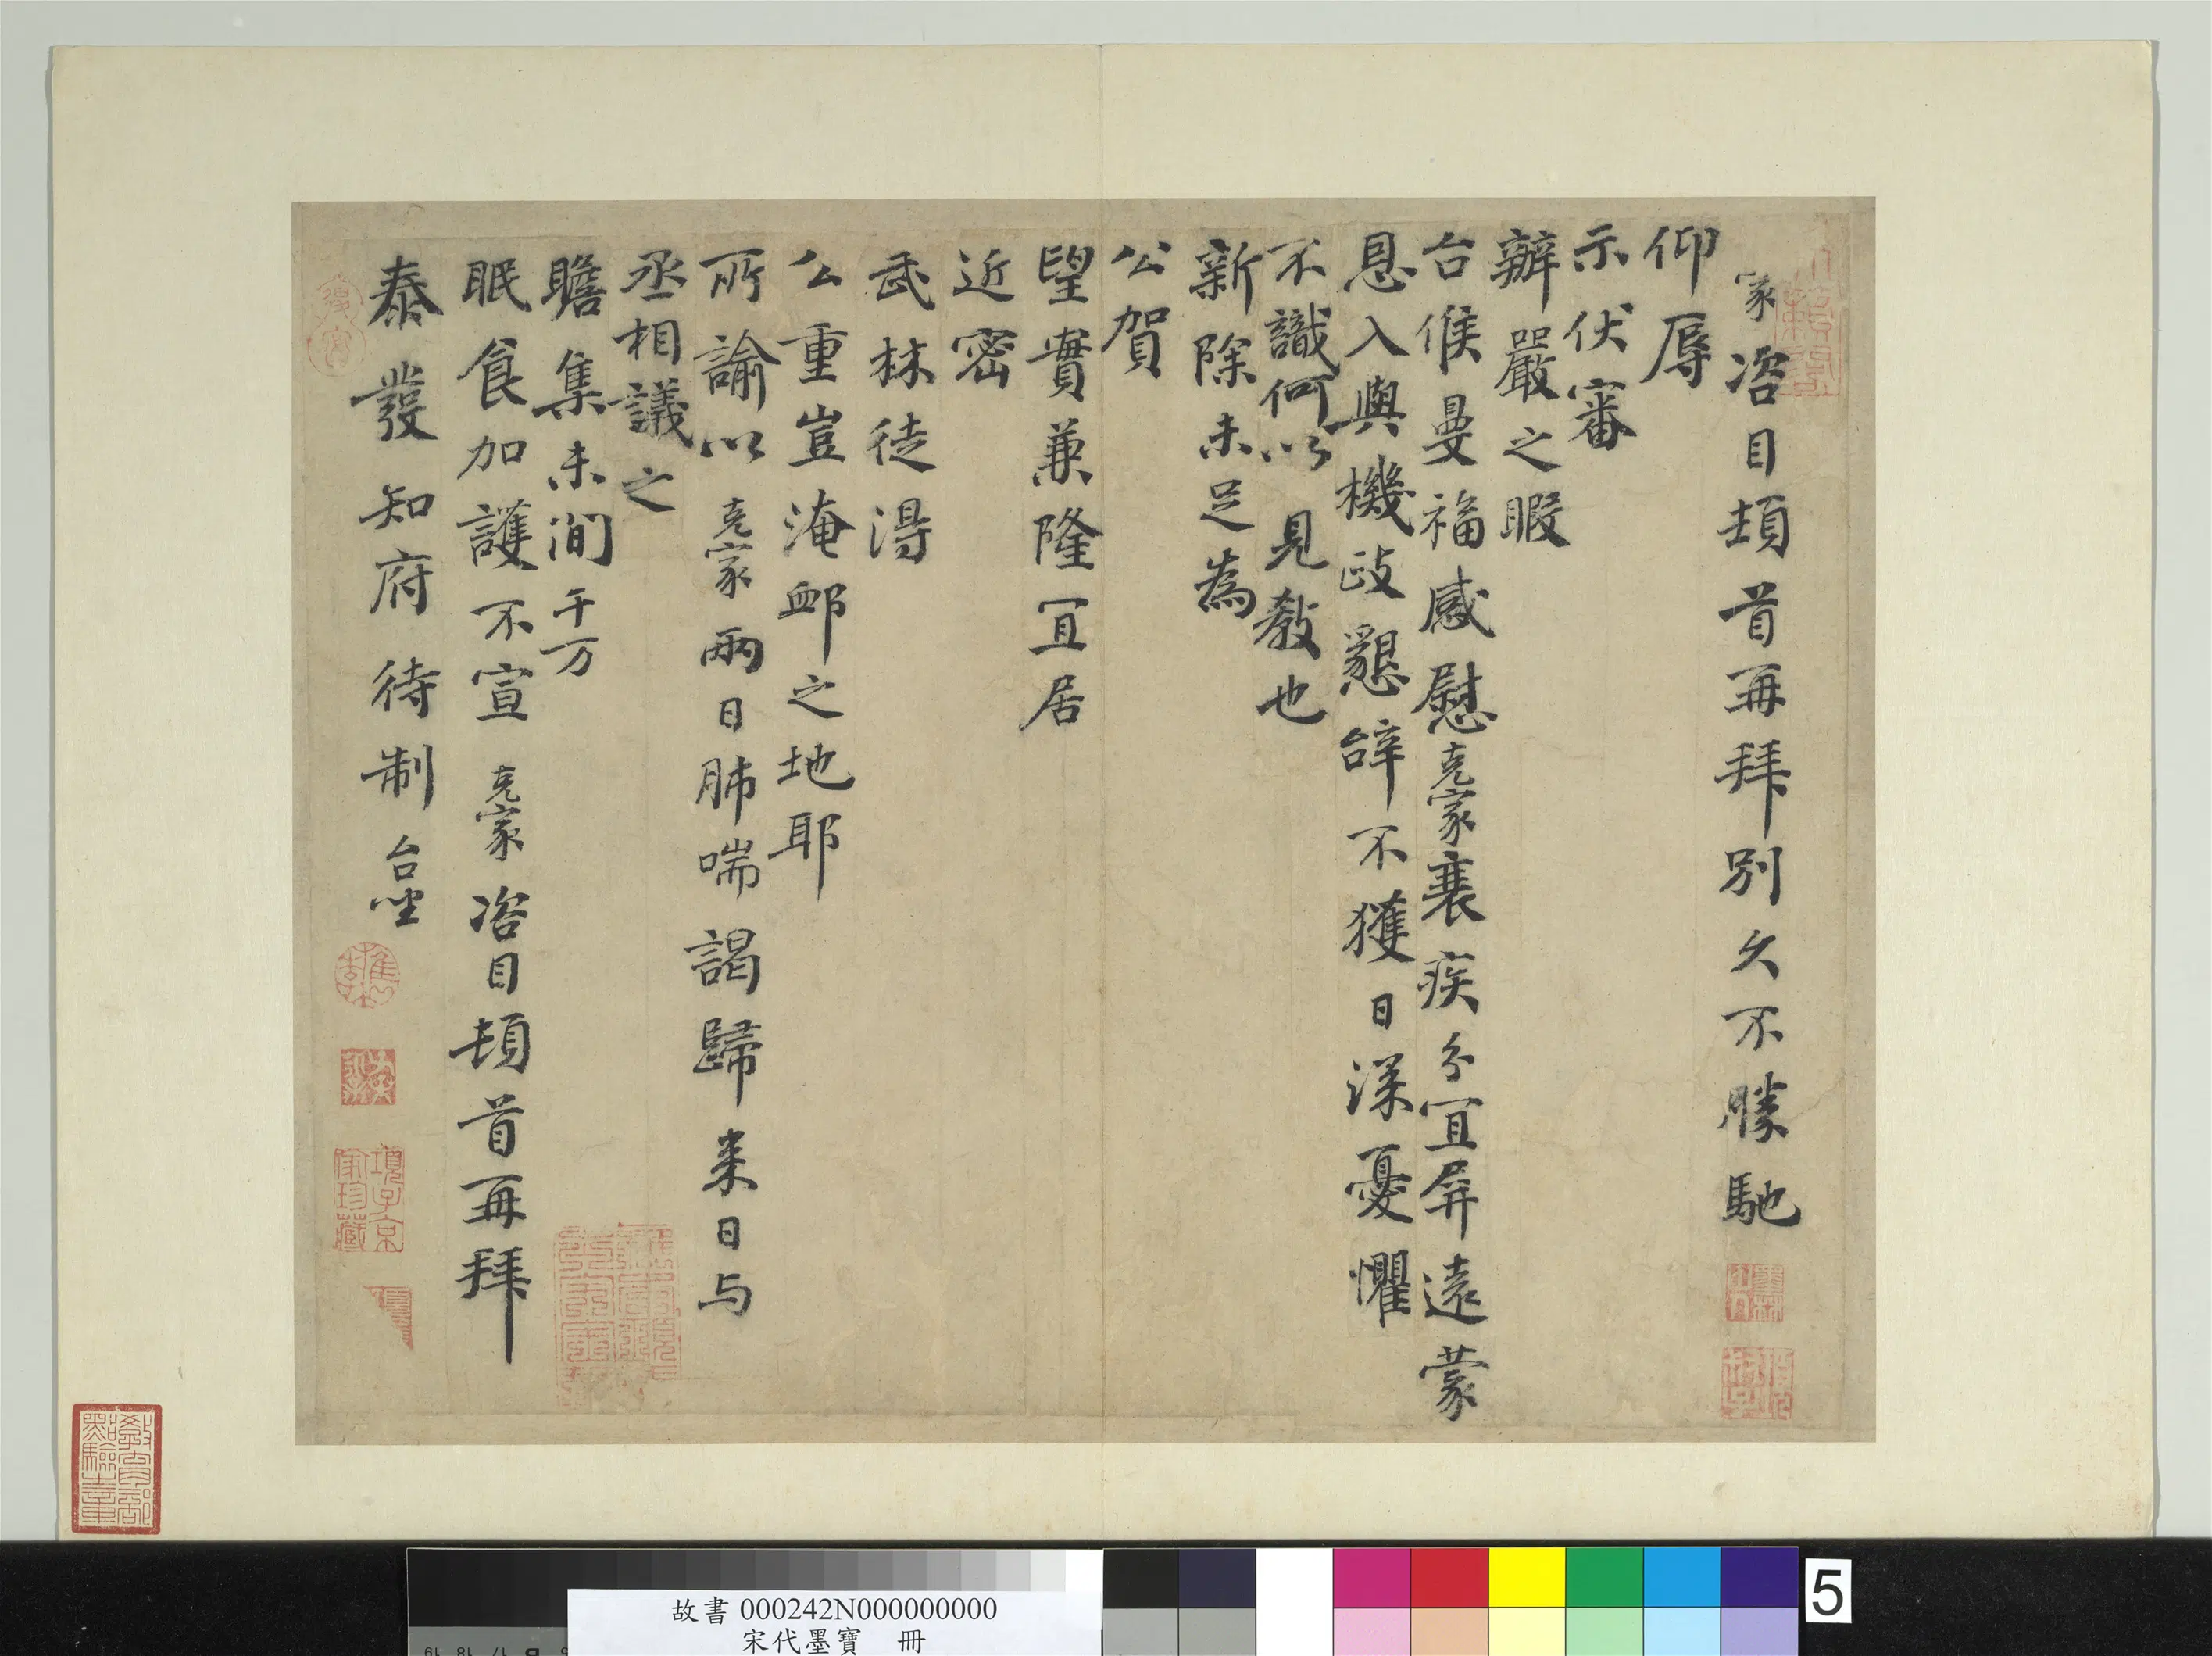 家咨目頓首再拜別久不勝馳
仰辱
示伏審
辦嚴之暇
台候曼福感慰克家衰疾分宜屏遠蒙
恩入與機政懇辭不獲日深憂懼
不識何以見教也
新除未足為
公賀
望實兼隆宜居
近密
武林徒得
公重豈淹卹之地耶
所諭以克家兩日肺喘謁歸來日与
丞相議之
瞻集未間千万
眠食加護不宣克家咨目頓首再拜
泰發知府待制台坐
項子京
家珍藏
教育部
點驗之章
5
故書 000242N000000000
宋代墨寶 冊